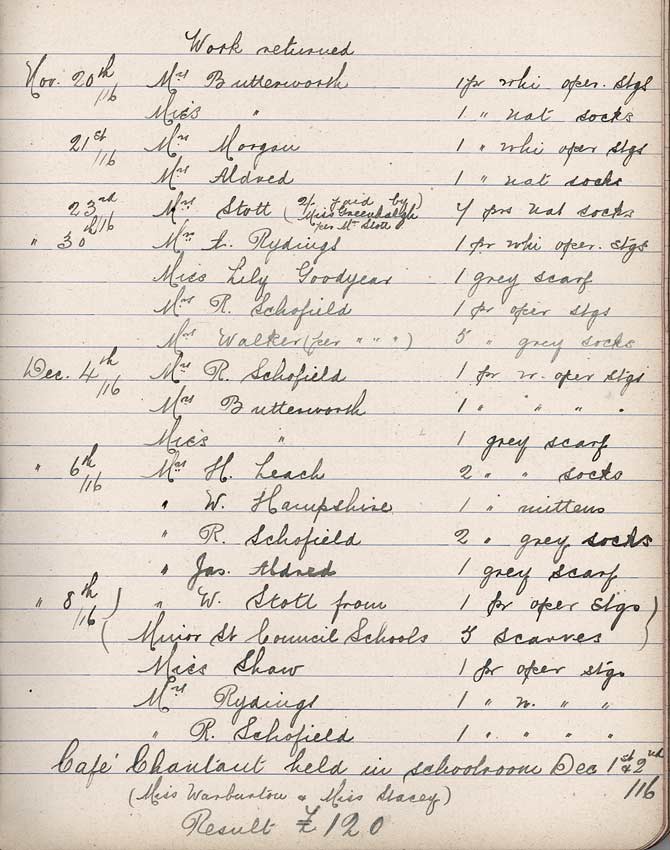 Work returned
Nov. 20th/16 Mrs Butterworth 1 pr whi oper. stgs
Miss " 1 " nat socks
21st/16 Mrs Morgan 1 " whi oper stgs
Mrs Aldred 1 " nat socks
23rd/16 Mrs Stott (2/- paid by Miss Greenhalgh per Mrs Stott) 4 prs nat socks
" 30th Mrs A. Rydings 1 pr whi oper. stgs
Miss Lily Goodyear 1 grey scarf
Mrs R. Schofield 1 pr oper stgs
Mrs Walker (per " " ") 5 " grey socks
Dec. 4th/16 Mrs R. Schofield 1 pr w. oper stgs
Mrs Butterworth 1 " " " "
Miss " 1 grey scarf
" 6th/16 Mrs H. Leach 2 " " socks
" W. Hampshire 1 " mittens
" R. Schofield 2 " grey socks
" Jas. Aldred 1 grey scarf
" 8th/16 ) " W. Stott from 1 pr oper stgs )
( Minor St Council Schools 5 scarves
Miss Shaw 1 pr oper stgs
Mrs Rydings 1 " w. " "
" R. Schofield 1 " " " "
Café Chantant held in schoolroom Dec 1st & 2nd/16
(Miss Warburton & Miss Stacey)
Result £120